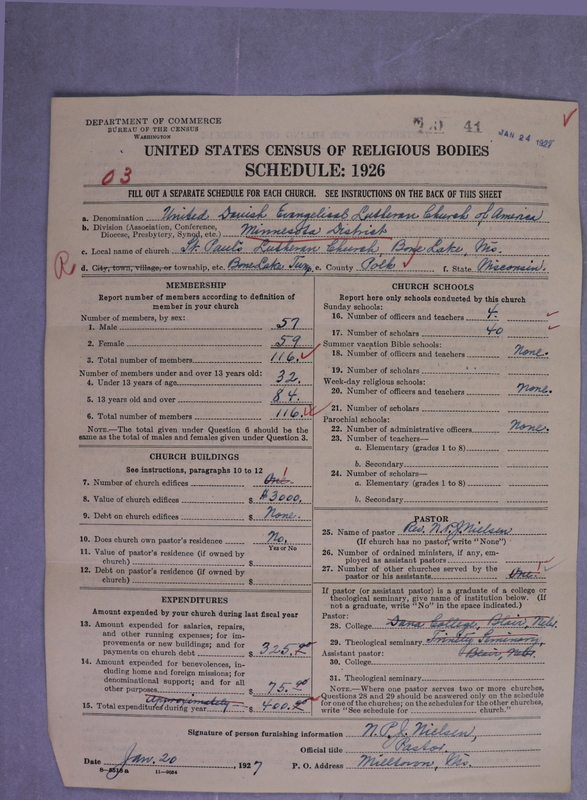 DEPARTMENT OF COMMERCE
BUREAU OF THE CENSUS
WASHINGTON
41
JAN 24 1927
UNITED STATES CENSUS OF RELIGIOUS BODIES
SCHEDULE: 1926
03
FILL OUT A SEPARATE SCHEDULE FOR EACH CHURCH. SEE INSTRUCTIONS ON THE BACK OF THIS SHEET
a. Denomination United Danish Evangelical Lutheran Church of America
b. Division (Association, Conference, Diocese, Presbytery, Synod, etc.) Minnesota District
c. Local name of church St. Paul's Lutheran Church, Bone Lake, Wis.
R d. City, town, village, or township, etc. Bone Lake Twp. e. County Polk f. State Wisconsin.
MEMBERSHIP
Report number of members according to definition of member in your church
Number of members, by sex:
1. Male 57
2. Female 59
3. Total number of members 116
Number of members under and over 13 years old:
4. Under 13 years of age 32.
5. 13 years old and over 84.
6. Total number of members 116.
NOTE.—The total given under Question 6 should be the same as the total of males and females given under Question 3.
CHURCH BUILDINGS
See instructions, paragraphs 10 to 12
7. Number of church edifices One 1
8. Value of church edifices $ #3000.
9. Debt on church edifices $ None.
10. Does church own pastor's residence No.
Yes or No
11. Value of pastor's residence (if owned by church) $
12. Debt on pastor's residence (if owned by church) $
EXPENDITURES
Amount expended by your church during last fiscal year
13. Amount expended for salaries, repairs, and other running expenses; for improvements or new buildings; and for payments on church debt $ 325.00
14. Amount expended for benevolences, including home and foreign missions; for denominational support; and for all other purposes $ 75.00
Approximately
15. Total expenditures during year $ 400.00
CHURCH SCHOOLS
Report here only schools conducted by this church
Sunday schools:
16. Number of officers and teachers 4.
17. Number of scholars 40
Summer vacation Bible schools:
18. Number of officers and teachers None.
19. Number of scholars
Week-day religious schools:
20. Number of officers and teachers None.
21. Number of scholars
Parochial schools:
22. Number of administrative officers None.
23. Number of teachers—
a. Elementary (grades 1 to 8)
b. Secondary
24. Number of scholars—
a. Elementary (grades 1 to 8)
b. Secondary
PASTOR
25. Name of pastor Rev. N.P.J. Nielsen
(If church has no pastor, write "None")
26. Number of ordained ministers, if any, employed as assistant pastors
27. Number of other churches served by the pastor or his assistants One. 1
If pastor (or assistant pastor) is a graduate of a college or theological seminary, give name of institution below. (If not a graduate, write "No" in the space indicated.)
Pastor:
28. College Dana College, Blair, Neb.
29. Theological seminary Trinity Seminary,
Assistant pastor: Blair, Neb.
30. College
31. Theological seminary
NOTE.—Where one pastor serves two or more churches, Questions 28 and 29 should be answered only on the schedule for one of the churches; on the schedules for the other churches, write "See schedule for church."
Signature of person furnishing information N.P.J. Nielsen,
Official title Pastor.
Date Jan. 20, 1927 P. O. Address Milltown, Wis.
8—5518a 11—9054